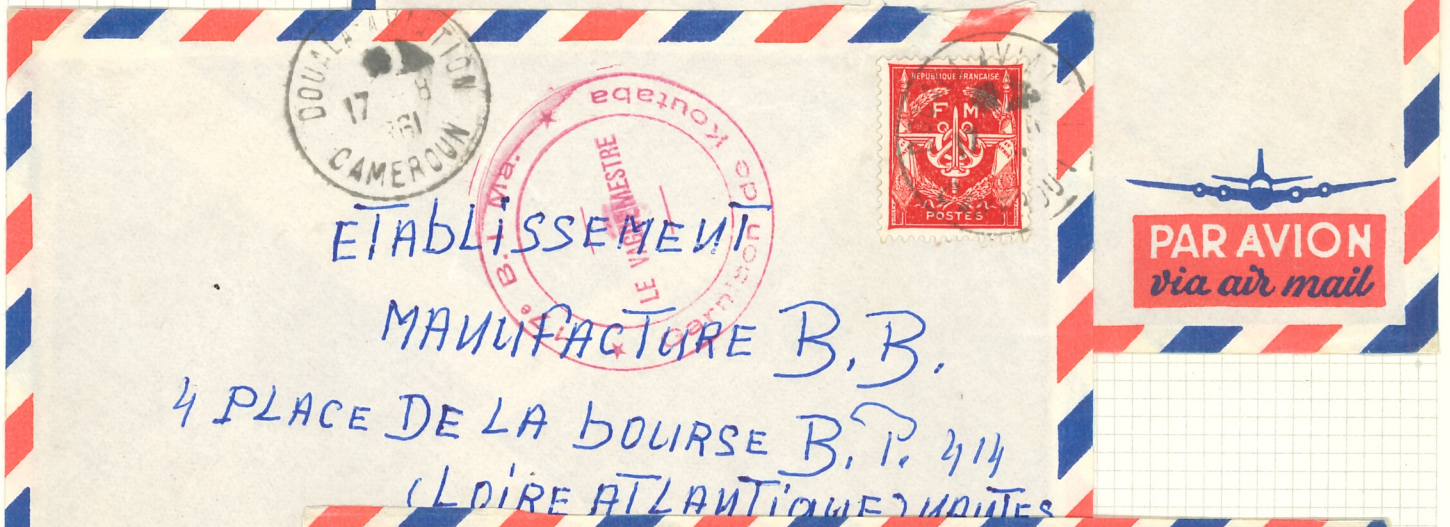 DOUALA AVIATION
17 8
1961
CAMEROUN
17e B. I. Ma.
Garnison de Koutaba
LE VAGUEMESTRE
REPUBLIQUE FRANCAISE
F M
POSTES
17
PAR AVION
via air mail
ETABLISSEMENT
MANUFACTURE B.B.
4 PLACE DE LA BOURSE B.P. 414
(LOIRE ATLANTIQUE) NANTES